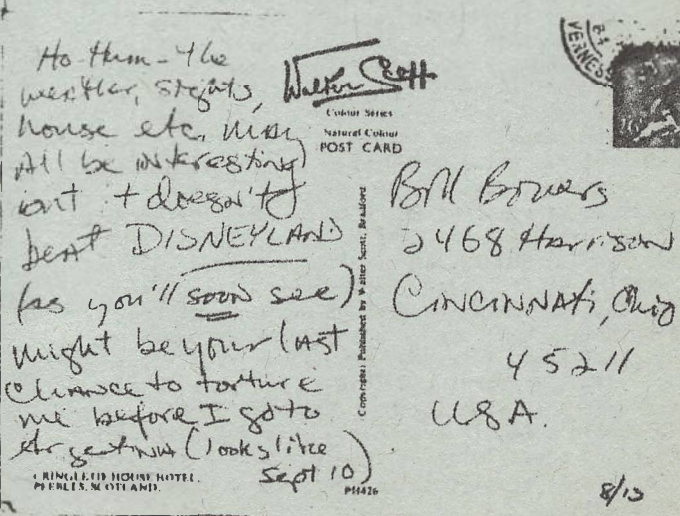 Ho-Hum - the
weather, sights,
house etc. may
All be interesting
but it doesn't
beat DISNEYLAND
(as you'll soon see)
might be your last
chance to torture
me before I go to
Argentina (looks like
Sept 10)
CRINGLETIE HOUSE HOTEL.
PEEBLES, SCOTLAND.
Walter Scott
Colour Series
Natural Colour
POST CARD
Copyright Published by Walter Scott, Bradford
PH426
Bill Bowers
2468 Harrison
CINCINNATI, Ohio
45211
USA.
8/12